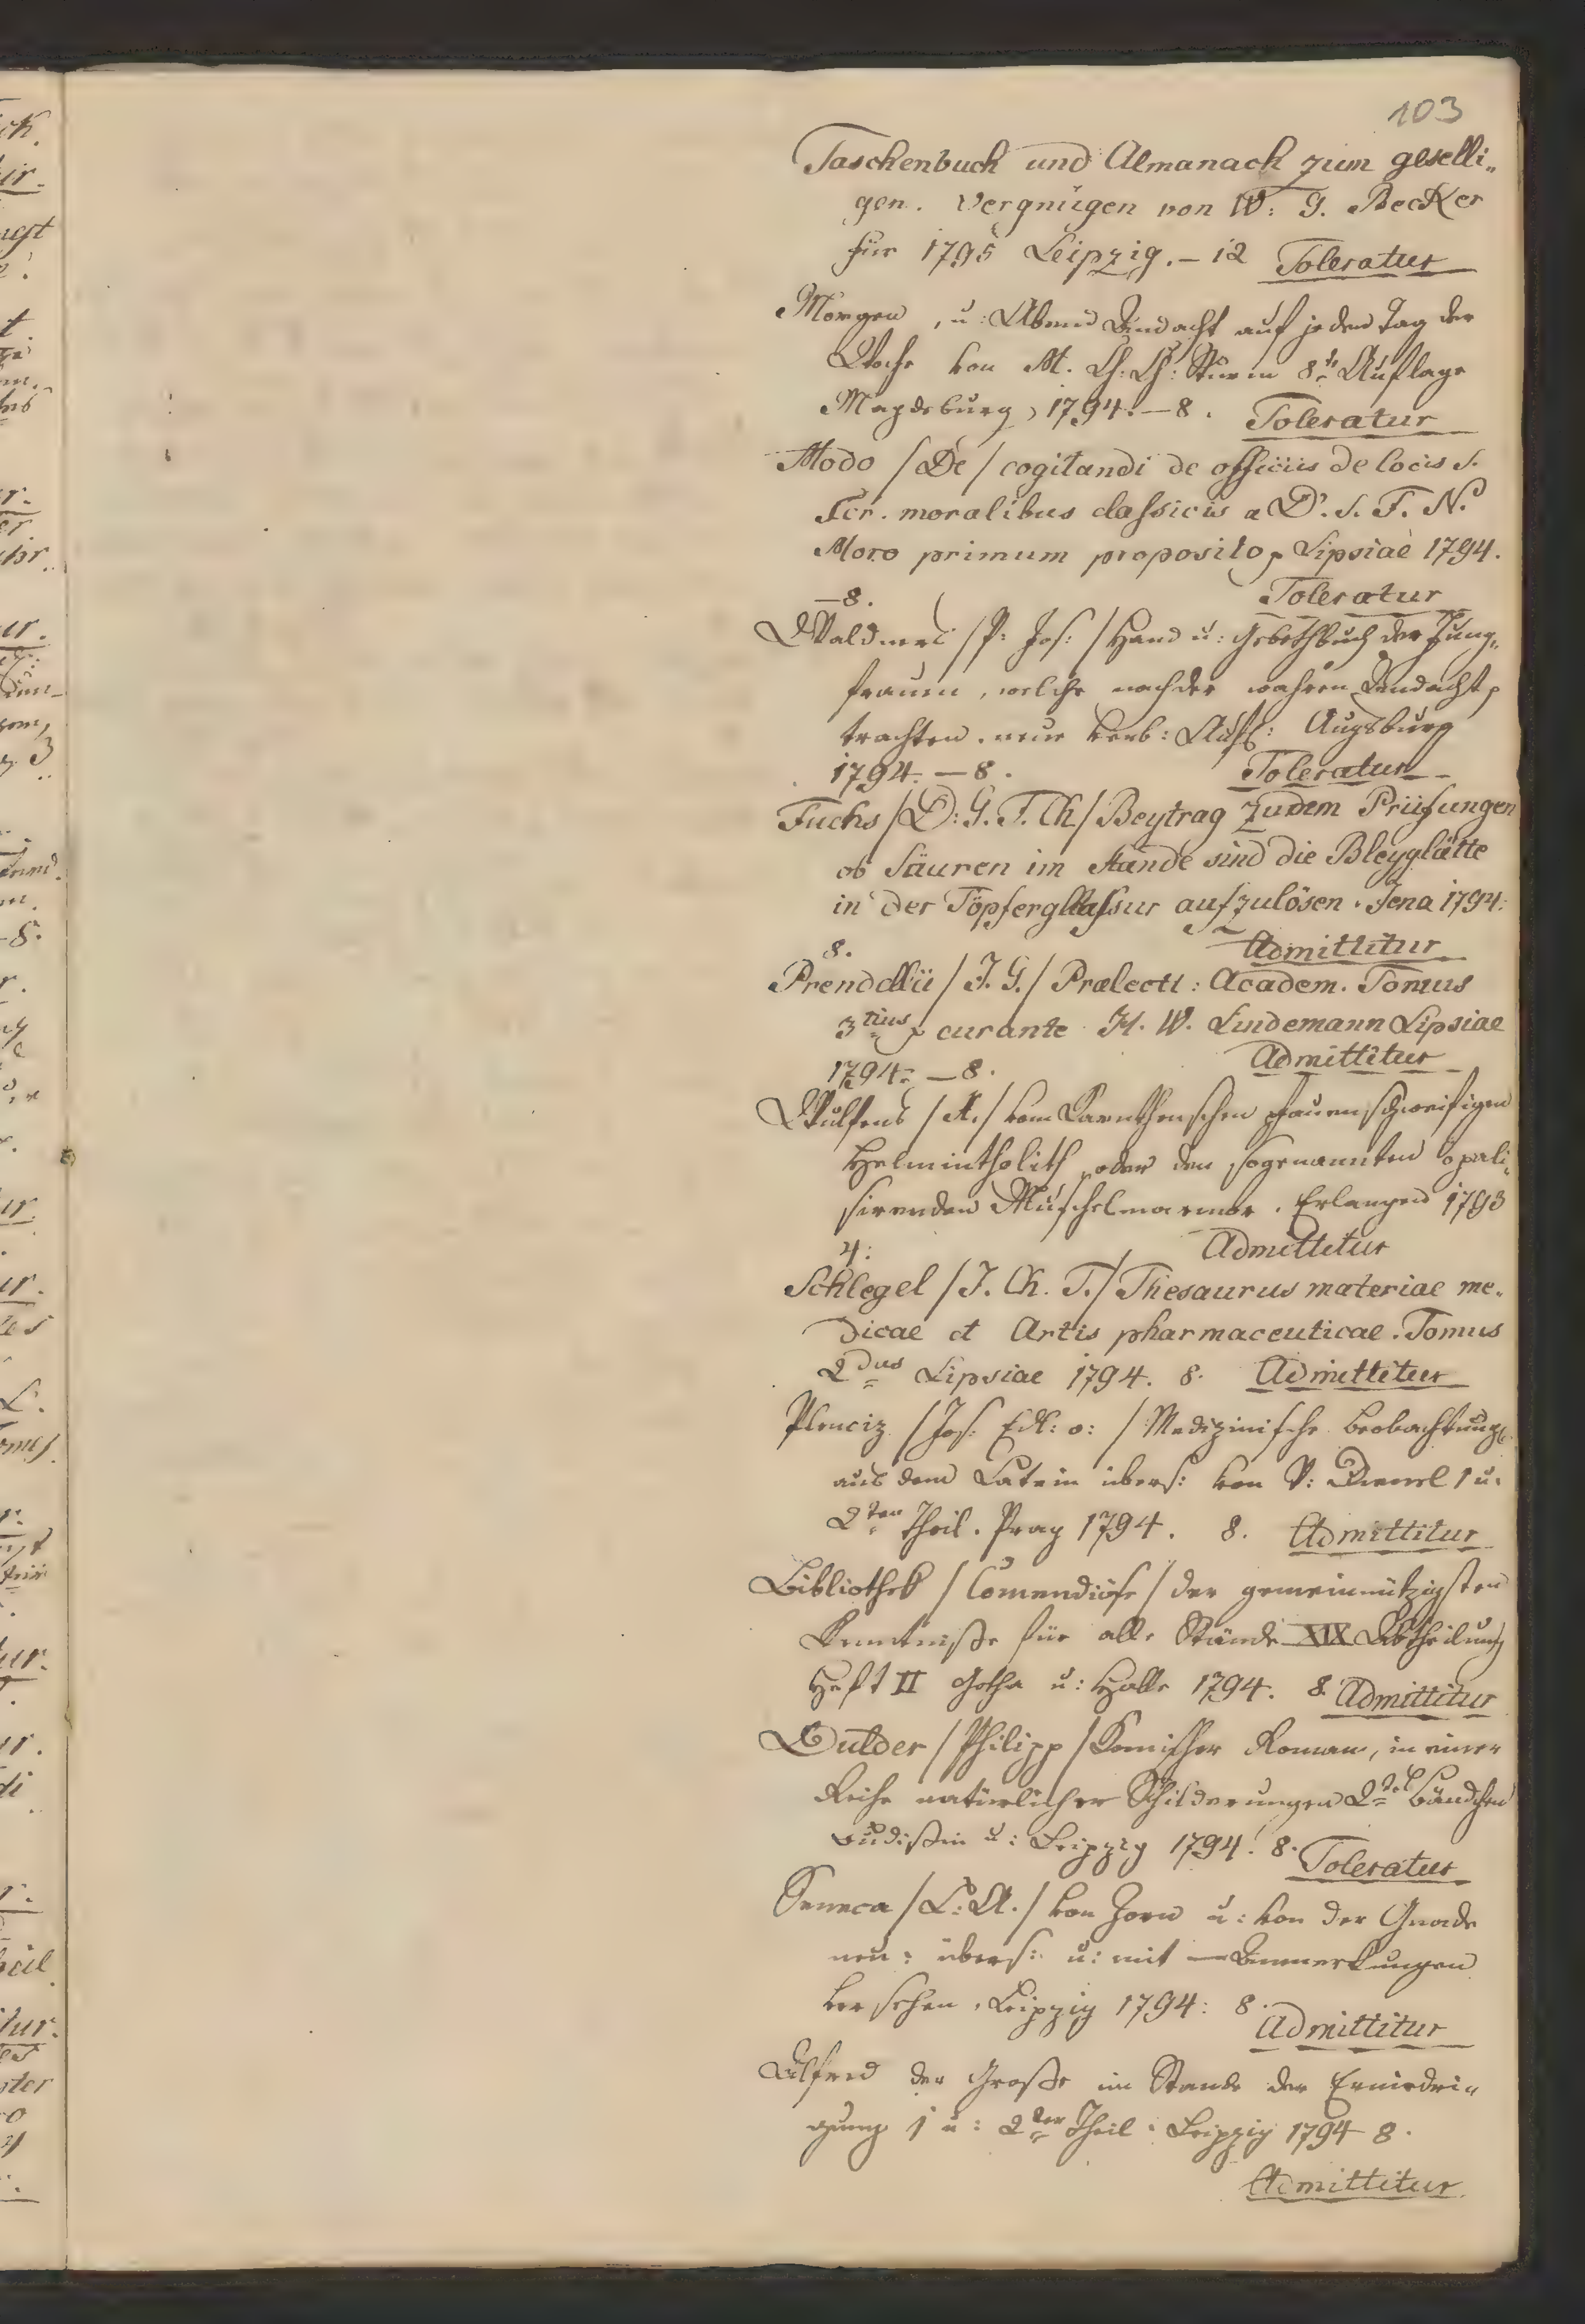 103
Taschenbuch und Almanach zum geselli„
gen. Vergnügen von W: G. Becker
für 1795 Leipzig. – 12 Toleratur
Morgen, u: Abend Andacht auf jeden Tag der
Woche von M. Ch: Ch: Sturm 8te Auflage
Magdeburg, 1794. – 8. Toleratur
Modo /De/ cogitandi de officiis de locis S.
Scr. moralibus classicis a D. S. F. N.
Moro primum proposito, Lipsiae 1794.
– 8. Toleratur
/P: Jos:/ Hand u: Gebethbuch der Jung„
frauen, welche nach der wahren Andacht
trachten. neue verb: Aufl: Augsburg
1794. – 8. Toleratur
Fuchs /D: G. F. Ch/ Beytrag zu dem Prüfungen
ob Säuren im Stande sind die Bleyglätte
in der Töpferglassur aufzulösen. Jena 1794.
8. Admittitur
/J. G./ Prælect: Academ. Tomus
3tius curante H. W. Lindemann Lipsiae
1794. – 8. Admittitur
Wulfens /X./ vom Kärnthenschen pfauenschweifigen
Helmintholith, oder den sogenannten opali„
sirenden Muschelmarmor. Erlangen 1793
4. Admittitur
Schlegel /J. Ch. T./ Thesaurus materiae me„
dicae et Artis pharmaceuticae. Tomus
2dus Lipsiae 1794. 8. Admittitur
Plenciz /Jos: Edl: v:/ Medizinische Beobachtung
aus dem Latein übers: von 1 u.
2ter Theil. Prag 1794. 8. Admittitur
Bibliothek /Comendiöse/ der gemeinnützigsten
Kenntniße für alle Stände XIX Abtheilung
Heft II Gotha u: Halle 1794. 8. Admittitur
Dulder /Philipp/ Komischer Roman, in einer
Reihe natürlicher Schilderungen 2tes Bändchen
Budißin u: Leipzig 1794. 8. Toleratur
Seneca /L: A./ von Zorn u: von der Gnade
neu: übers: u: mit Anmerkungen
versehen. Leipzig 1794: 8. Admittitur
Alfred der Große im Stande der Erniedri„
gung 1 u: 2ter Theil. Leipzig 1794 8.
Admittitur